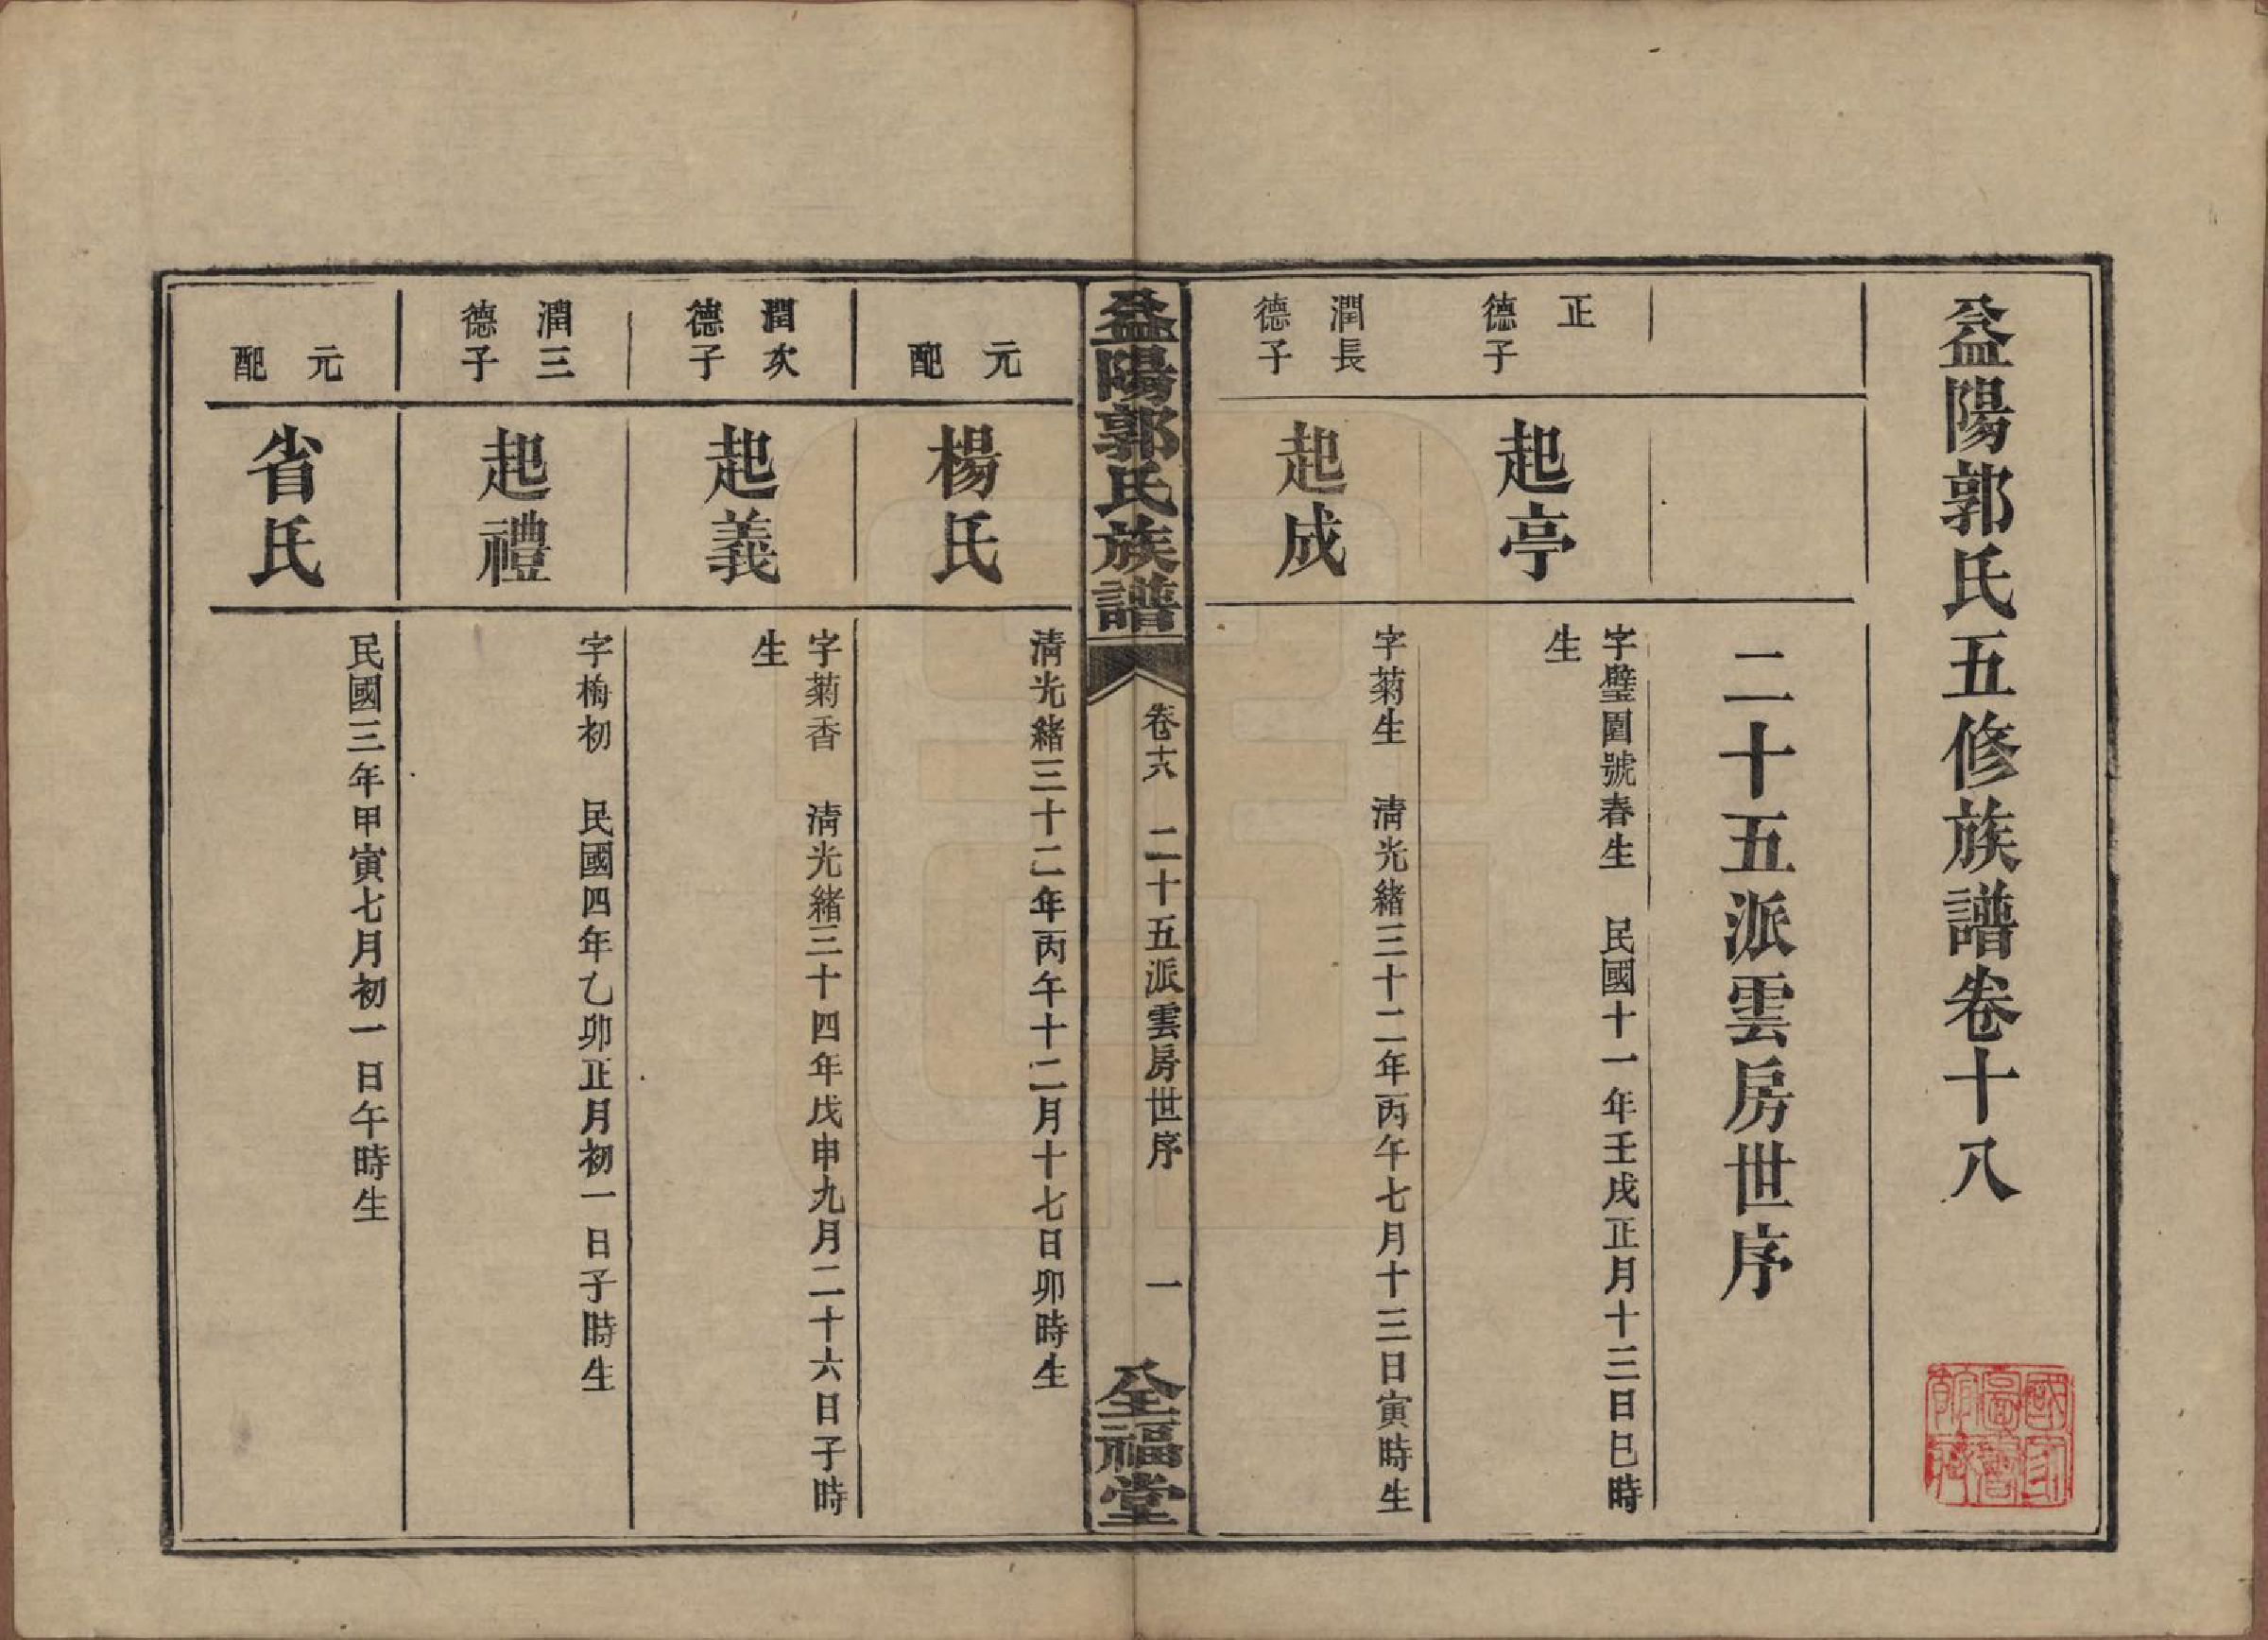 益陽郭氏五修族譜卷十八
二十五派雲房世序
正
德子
起亭
字璧園號春生　民國十一年壬戌正月十三日巳時
生
潤長
德子
起成
字菊生　清光緒三十二年丙午七月十三日寅時生
益陽郭氏族譜
卷十八　二十五派雲房世序　一
全福堂
元
配
楊氏
清光緒三十二年丙午十二月十七日卯時生
潤次
德子
起義
字菊香　清光緒三十四年戊申九月二十六日子時
生
潤三
德子
起禮
字梅初　民國四年乙卯正月初一日子時生
元
配
省氏
民國三年甲寅七月初一日午時生
國家
圖書
館藏